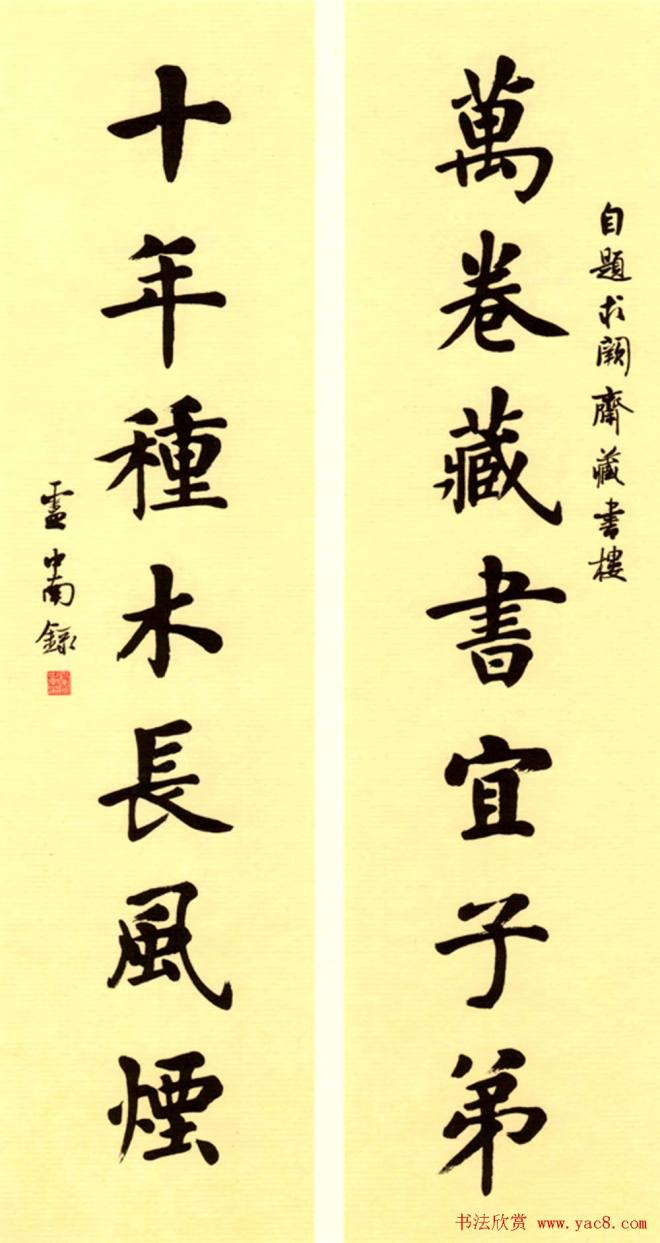 自题求阙齋藏書樓
萬卷藏書宜子弟
十年種木長風煙
盧中南錄
书法欣赏 www.yac8.com